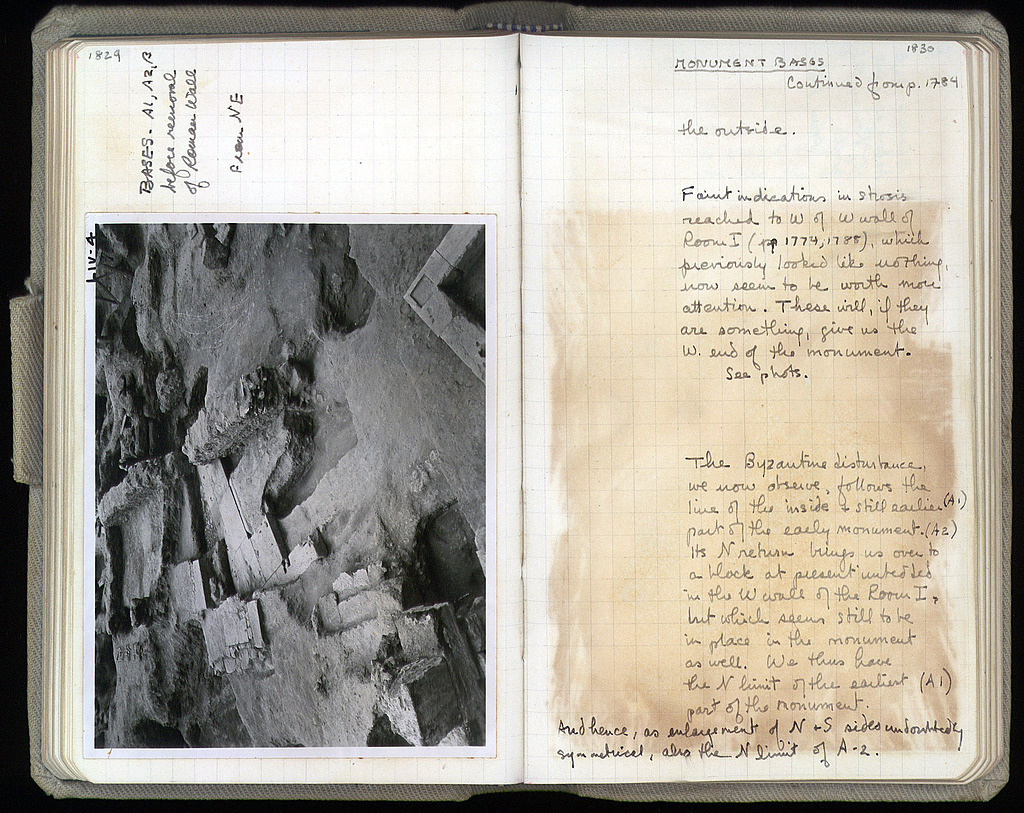 1829
BASES - A1, A2, B
before removal
of Roman Wall
From NE
LIV-4
1830
MONUMENT BASES
Continued from p. 1784
the outside.
Faint indications in stosis
reached to W of W wall of
Room I (pp 1774, 1788), which
previously looked like nothing,
now seem to be worth more
attention. These will, if they
are something, give us the
W. end of the monument.
See photo.
The Byzantine disturbance,
we now observe, follows the
line of the inside & still earlier (A1)
part of the early monument. (A2)
Its N return brings us over to
a block at present
in the W wall of the Room I,
but which seems still to be
in place in the monument
as well. We thus have
the N limit of the earliest (A1)
part of the monument.
And hence, as enlargement of N & S sides undoubtedly
symmetrical, also the N limit of A-2.